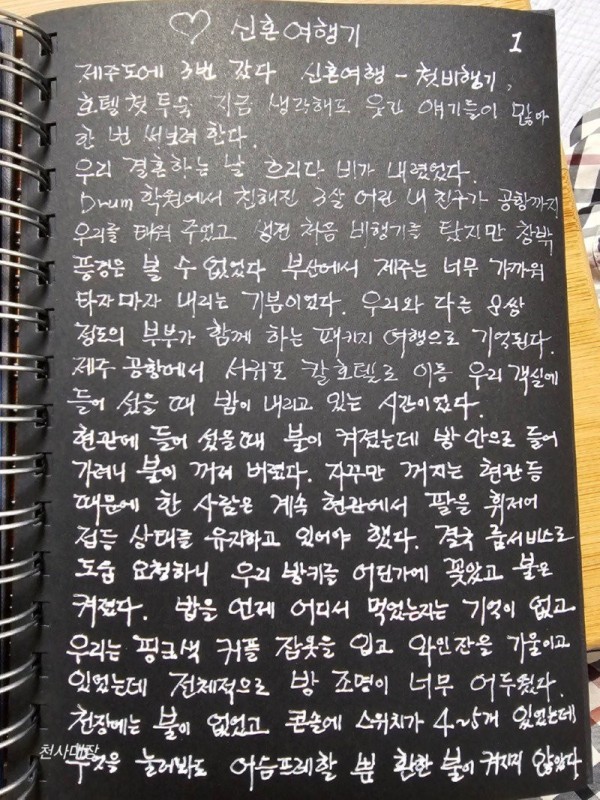 ♡ 신혼여행기
1
제주도에 3번 갔다 신혼여행 - 첫비행기,
호텔 첫 투숙 지금 생각해도 웃긴 얘기들이 많아
한 번 써보려 한다.
우리 결혼하는 날 흐리다 비가 내렸었다.
Drum 학원에서 친해진 3살 어린 내 친구가 공항까지
우리를 태워 주었고 생전 처음 비행기를 탔지만 창밖
풍경은 볼 수 없었다 부산에서 제주는 너무 가까워
타자마자 내리는 기분이었다. 우리와 다른 8쌍
정도의 부부가 함께 하는 패키지 여행으로 기억된다.
제주 공항에서 서귀포 칼호텔로 이동 우리 객실에
들어 섰을 때 밤이 내리고 있는 시간이었다.
현관에 들어 섰을때 불이 켜졌는데 방 안으로 들어
가려니 불이 꺼져 버렸다. 자꾸만 꺼지는 현관등
때문에 한 사람은 계속 현관에서 팔을 휘저어
점등 상태를 유지하고 있어야 했다. 결국 룸서비스로
도움 요청하니 우리 방키를 어딘가에 꽂았고 불은
켜졌다. 밥을 언제 어디서 먹었는지는 기억이 없고
우리는 핑크색 커플 잠옷을 입고 와인잔을 기울이고
있었는데 전체적으로 방 조명이 너무 어두웠다.
천장에는 불이 없었고 콘솔에 스위치가 4~5개 있었는데
무엇을 눌러봐도 어슴프레할 뿐 환한 불이 켜지지 않았다
천사대장